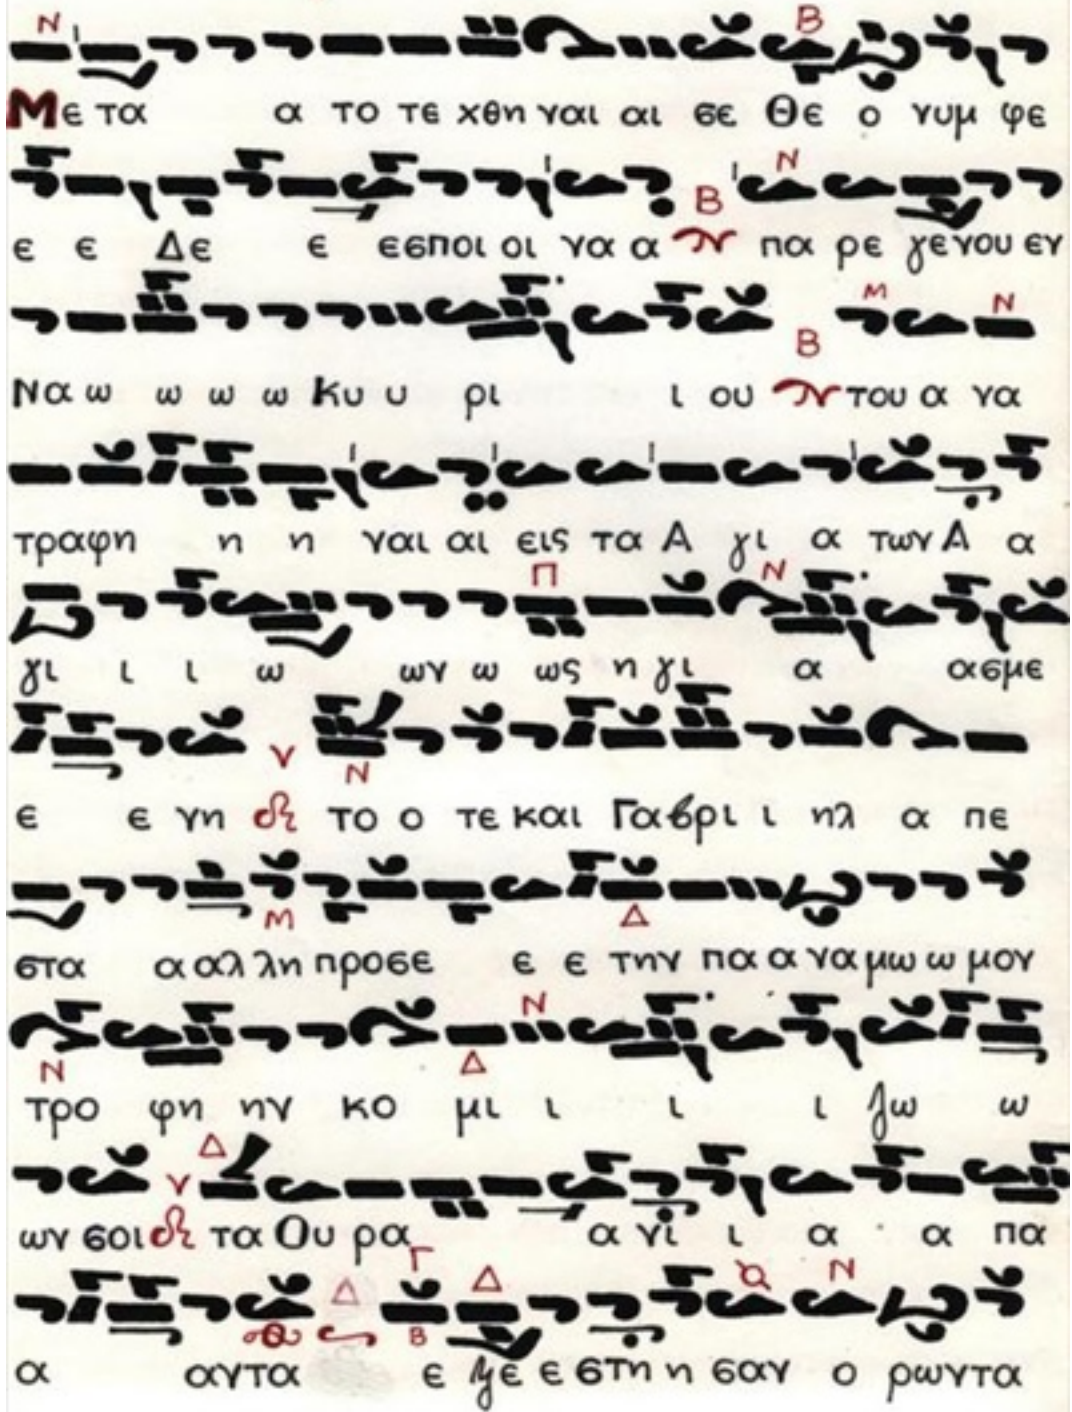 Με τα α το τε χθη ναι αι σε Θε ο νυμ φε
ε ε Δε ε εσποι οι να α Β πα ρε γενου εν
Να ω ω ω ω Κυ υ ρι ι ου Β του α να
τραφη η η ναι αι εις τα Α γι α των Α α
γι ι ι ω ων ω ως η γι α ασμε
ε ε νη το ο τε και Γαβρι ι ηλ α πε
στα α αλ λη προσε ε ε την πα α να μω ω μον
τρο φη ην κο μι ι ι ι ζω ω
ων σοι τα Ου ρα α νι ι α α πα
α αντα ε ξε ε στη η σαν ο ρωντα